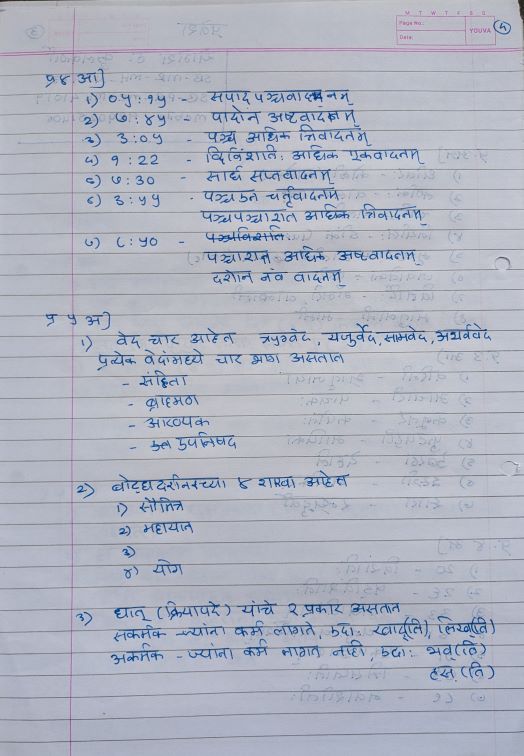 M T W T F S S
Page No.:
Date:
YOUVA
4
प्र.४.आ]
१) ०५:१५ - सपाद पञ्चवादनम्
२) ७:४५ - पादोन अष्टवादनम्
३) ३:०५ - पञ्च अधिक त्रिवादनम्
४) १:२२ - द्विविंशति: अधिक एकवादनम्
५) ७:३० - सार्ध सप्तवादनम्
६) ३:५५ - पञ्च ऊन चर्तुवादनम्
पञ्चपञ्चाशत अधिक त्रिवादनम्
७) ८:५० - पञ्चविंशति:
पञ्चाशत् अधिक अष्टवादनम्
दशोन नव वादनम्
प्र ५ अ]
१) वेद चार आहेत ऋग्वेद, यजुर्वेद, सामवेद, अथर्ववेद
प्रत्येक वेदांमध्ये चार भाग असतात
- संहिता
- ब्राह्मण
- आरण्यक
- उपनिषद
२) बौद्धदर्शनाच्या ४ शाखा आहेत
१) सौतित्र
२) महायान
३)
४) योग
३) धातू (क्रियापदे) यांचे २ प्रकार असतात
सकर्मक - ज्यांना कर्म लागते, उदा: स्वाद्(ति), लिख्(ति)
अकर्मक - ज्यांना कर्म लागत नाही, उदा: भव्(ति)
हस्(ति)